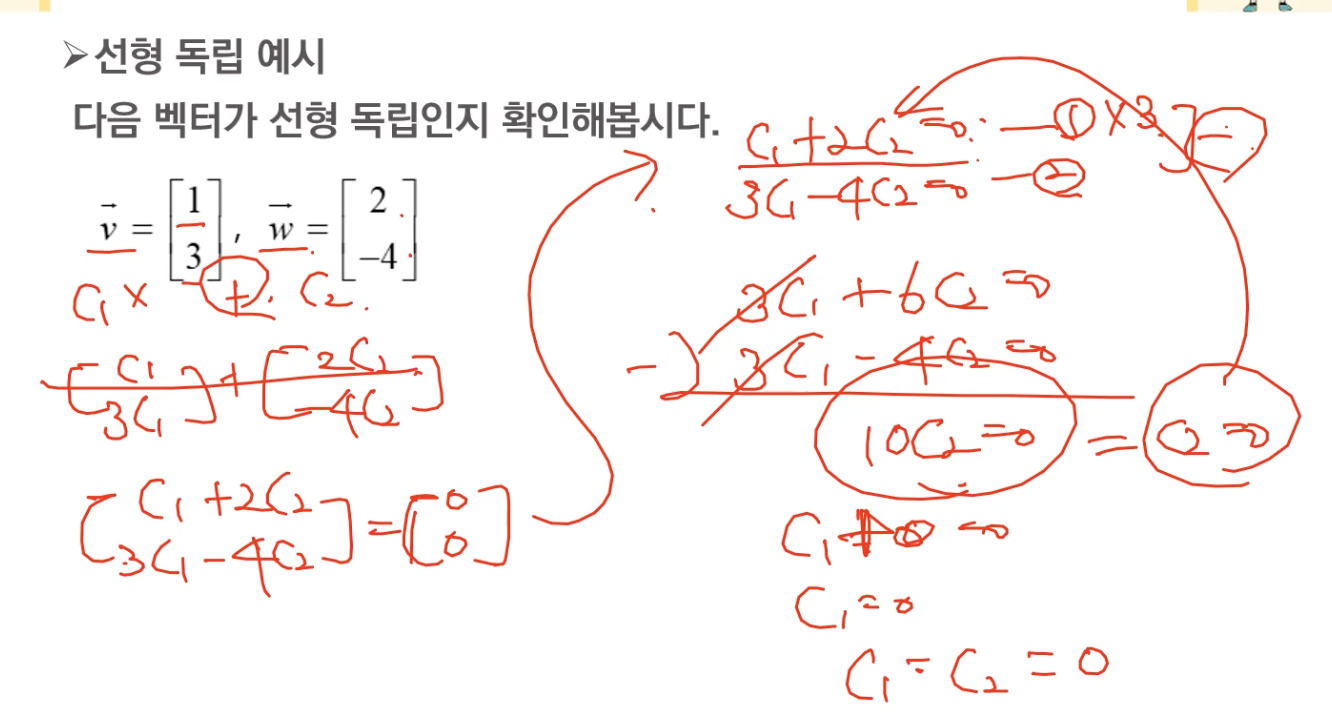 ➢선형 독립 예시
다음 벡터가 선형 독립인지 확인해봅시다.
v = [1 3], w = [2 -4]
C₁ × + C₂
[C₁ 3C₁] + [2C₂ -4C₂]
[C₁+2C₂ 3C₁-4C₂] = [0 0]
C₁+2C₂=0 — ① ×3 ] -
3C₁-4C₂=0 — ②
3C₁+6C₂=0
-) 3C₁-4C₂=0
10C₂=0 = C₂=0
C₁+0=0
C₁=0
C₁=C₂=0